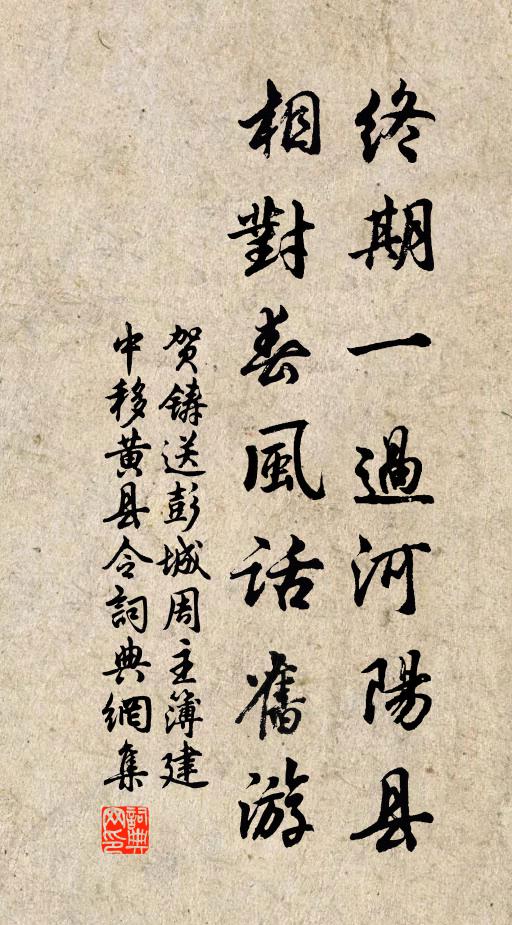 终期一過河陽县
相對春風話舊游
贺鑄送彭城周主簿建
中移黄县令詞典網集
詞典网印